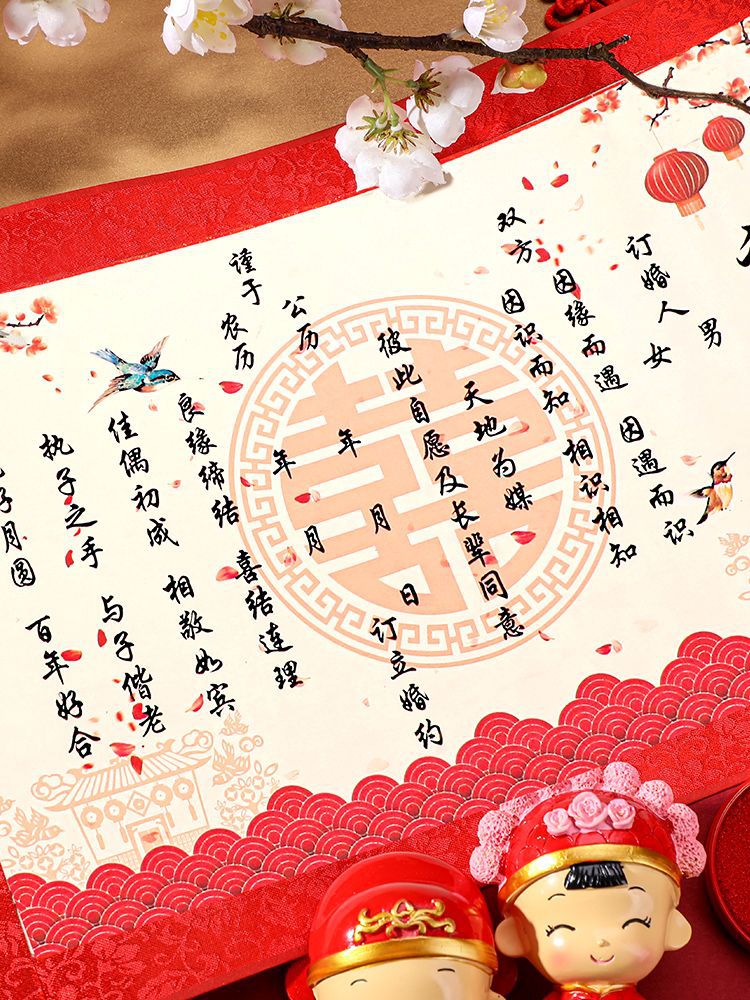 订婚人 男
女
双方
因缘而遇 因遇而识
因识而知 相识相知
天地为媒
彼此自愿及长辈同意
谨于
公历 年 月 日 订立婚约
农历 年 月
良缘缔结 喜结连理
佳偶初成 相敬如宾
执子之手 与子偕老
月圆 百年好合